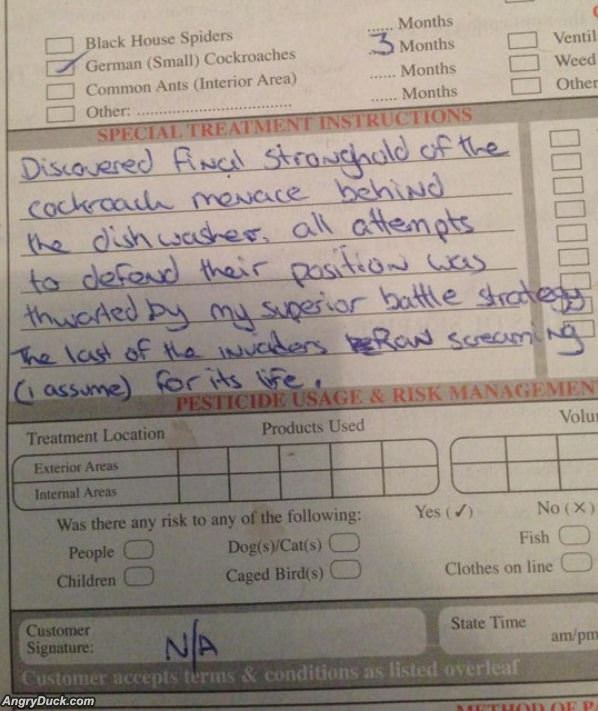 ...... Months
Black House Spiders
3 Months
Ventil
German (Small) Cockroaches
...... Months
Weed
Common Ants (Interior Area)
...... Months
Other
Other: ..................................
SPECIAL TREATMENT INSTRUCTIONS
Discovered final stronghold of the
cockroach menace behind
the dishwasher, all attempts
to defend their position was
thwarted by my superior battle strategy
The last of the invaders Ran screaming
(i assume) for its life.
PESTICIDE USAGE & RISK MANAGEMEN
Treatment Location
Products Used
Volu
Exterior Areas
Internal Areas
Was there any risk to any of the following:
Yes (✓)
No (✕)
People
Dog(s)/Cat(s)
Fish
Children
Caged Bird(s)
Clothes on line
Customer
Signature:
N/A
State Time
am/pm
Customer accepts terms & conditions as listed overleaf
AngryDuck.com
METHOD OF PA